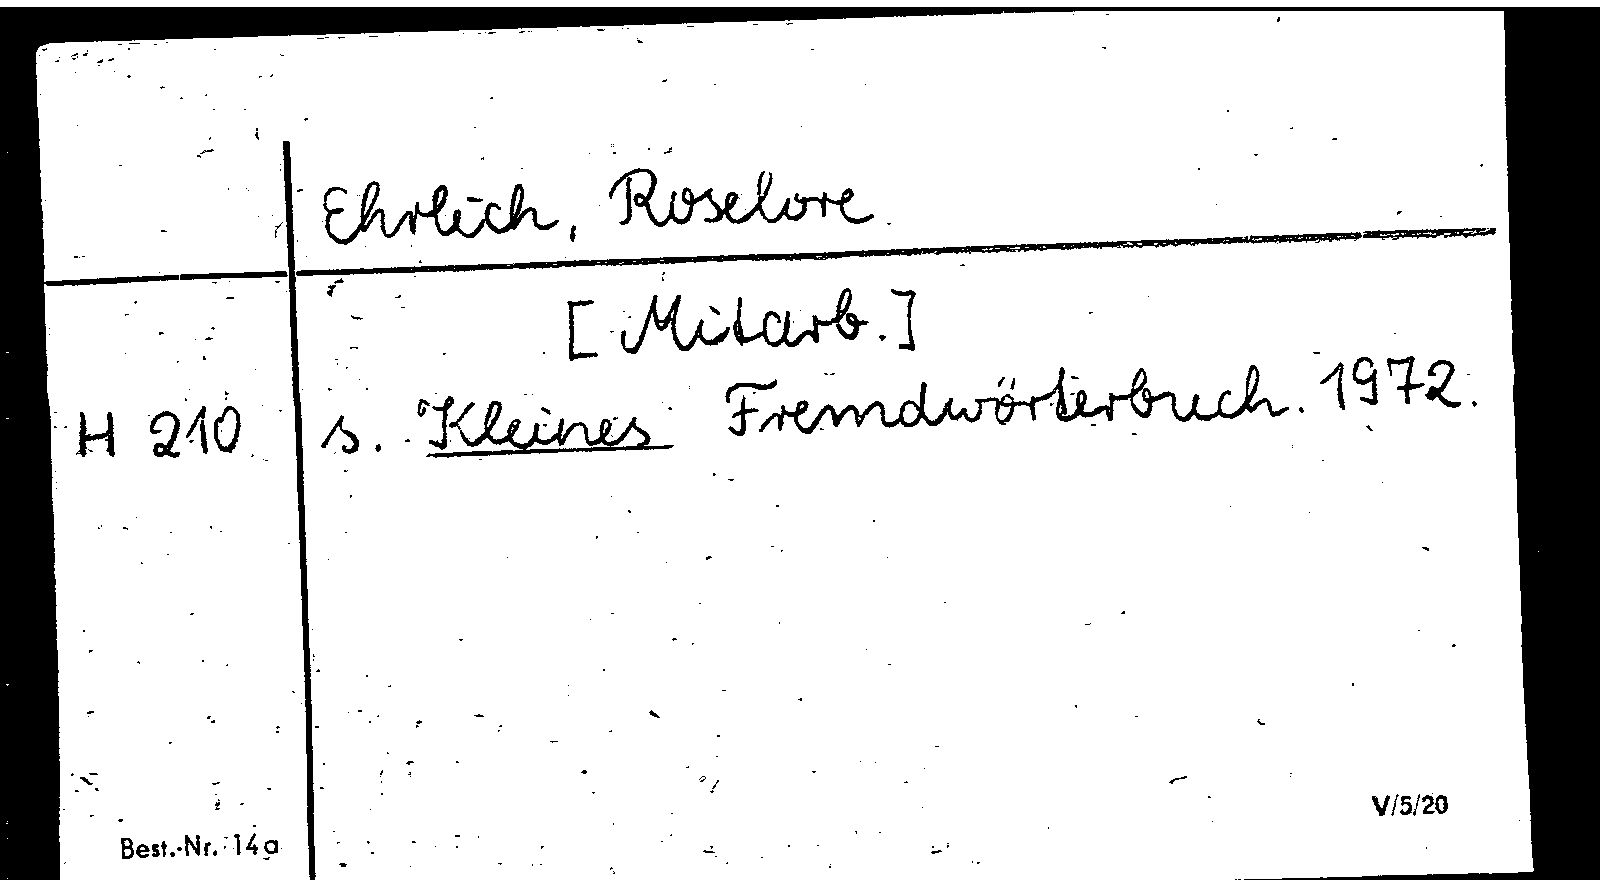 Ehrlich, Roselore
[Mitarb.]
H 210 s. Kleines Fremdwörterbuch. 1972.
V/5/20
Best.-Nr. 14a